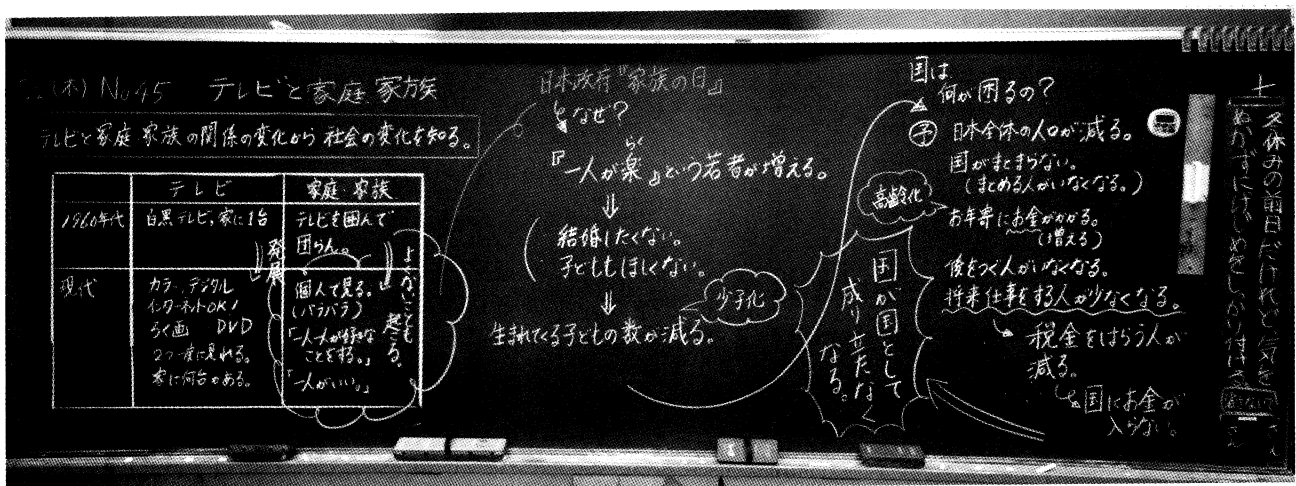 (木) No.45 テレビと家庭 家族
テレビと家庭 家族の関係の変化から 社会の変化を知る。
テレビ 家庭・家族
1960年代
白黒テレビ,家に1台
テレビを囲んで
団らん。
発展
よくないことも
起こる。
現代
カラー デジタル
インターネットOK!
らく画 DVD
2つ一度に見れる。
家に何台もある。
個人で見る。
(バラバラ)
「一人一人が好きな
ことをする。」
「一人がいい。」
日本政府『家族の日』
なぜ?
らく
『一人が楽』という若者が増える。
⇓
結婚したくない。
子どももほしくない。
⇓
少子化
生まれてくる子どもの数が減る。
国は
何が困るの?
予 日本全体の人口が減る。
国がまとまらない。
(まとめる人がいなくなる。)
高齢化
お年寄にお金がかかる。
(増える)
後をつぐ人がいなくなる。
将来仕事をする人が少なくなる。
税金をはらう人が
減る。
国にお金が
入らない。
国が国として
成り立たなく
なる。
冬休みの前日だけれど、気を
ぬかずにけじめをしっかり付ける